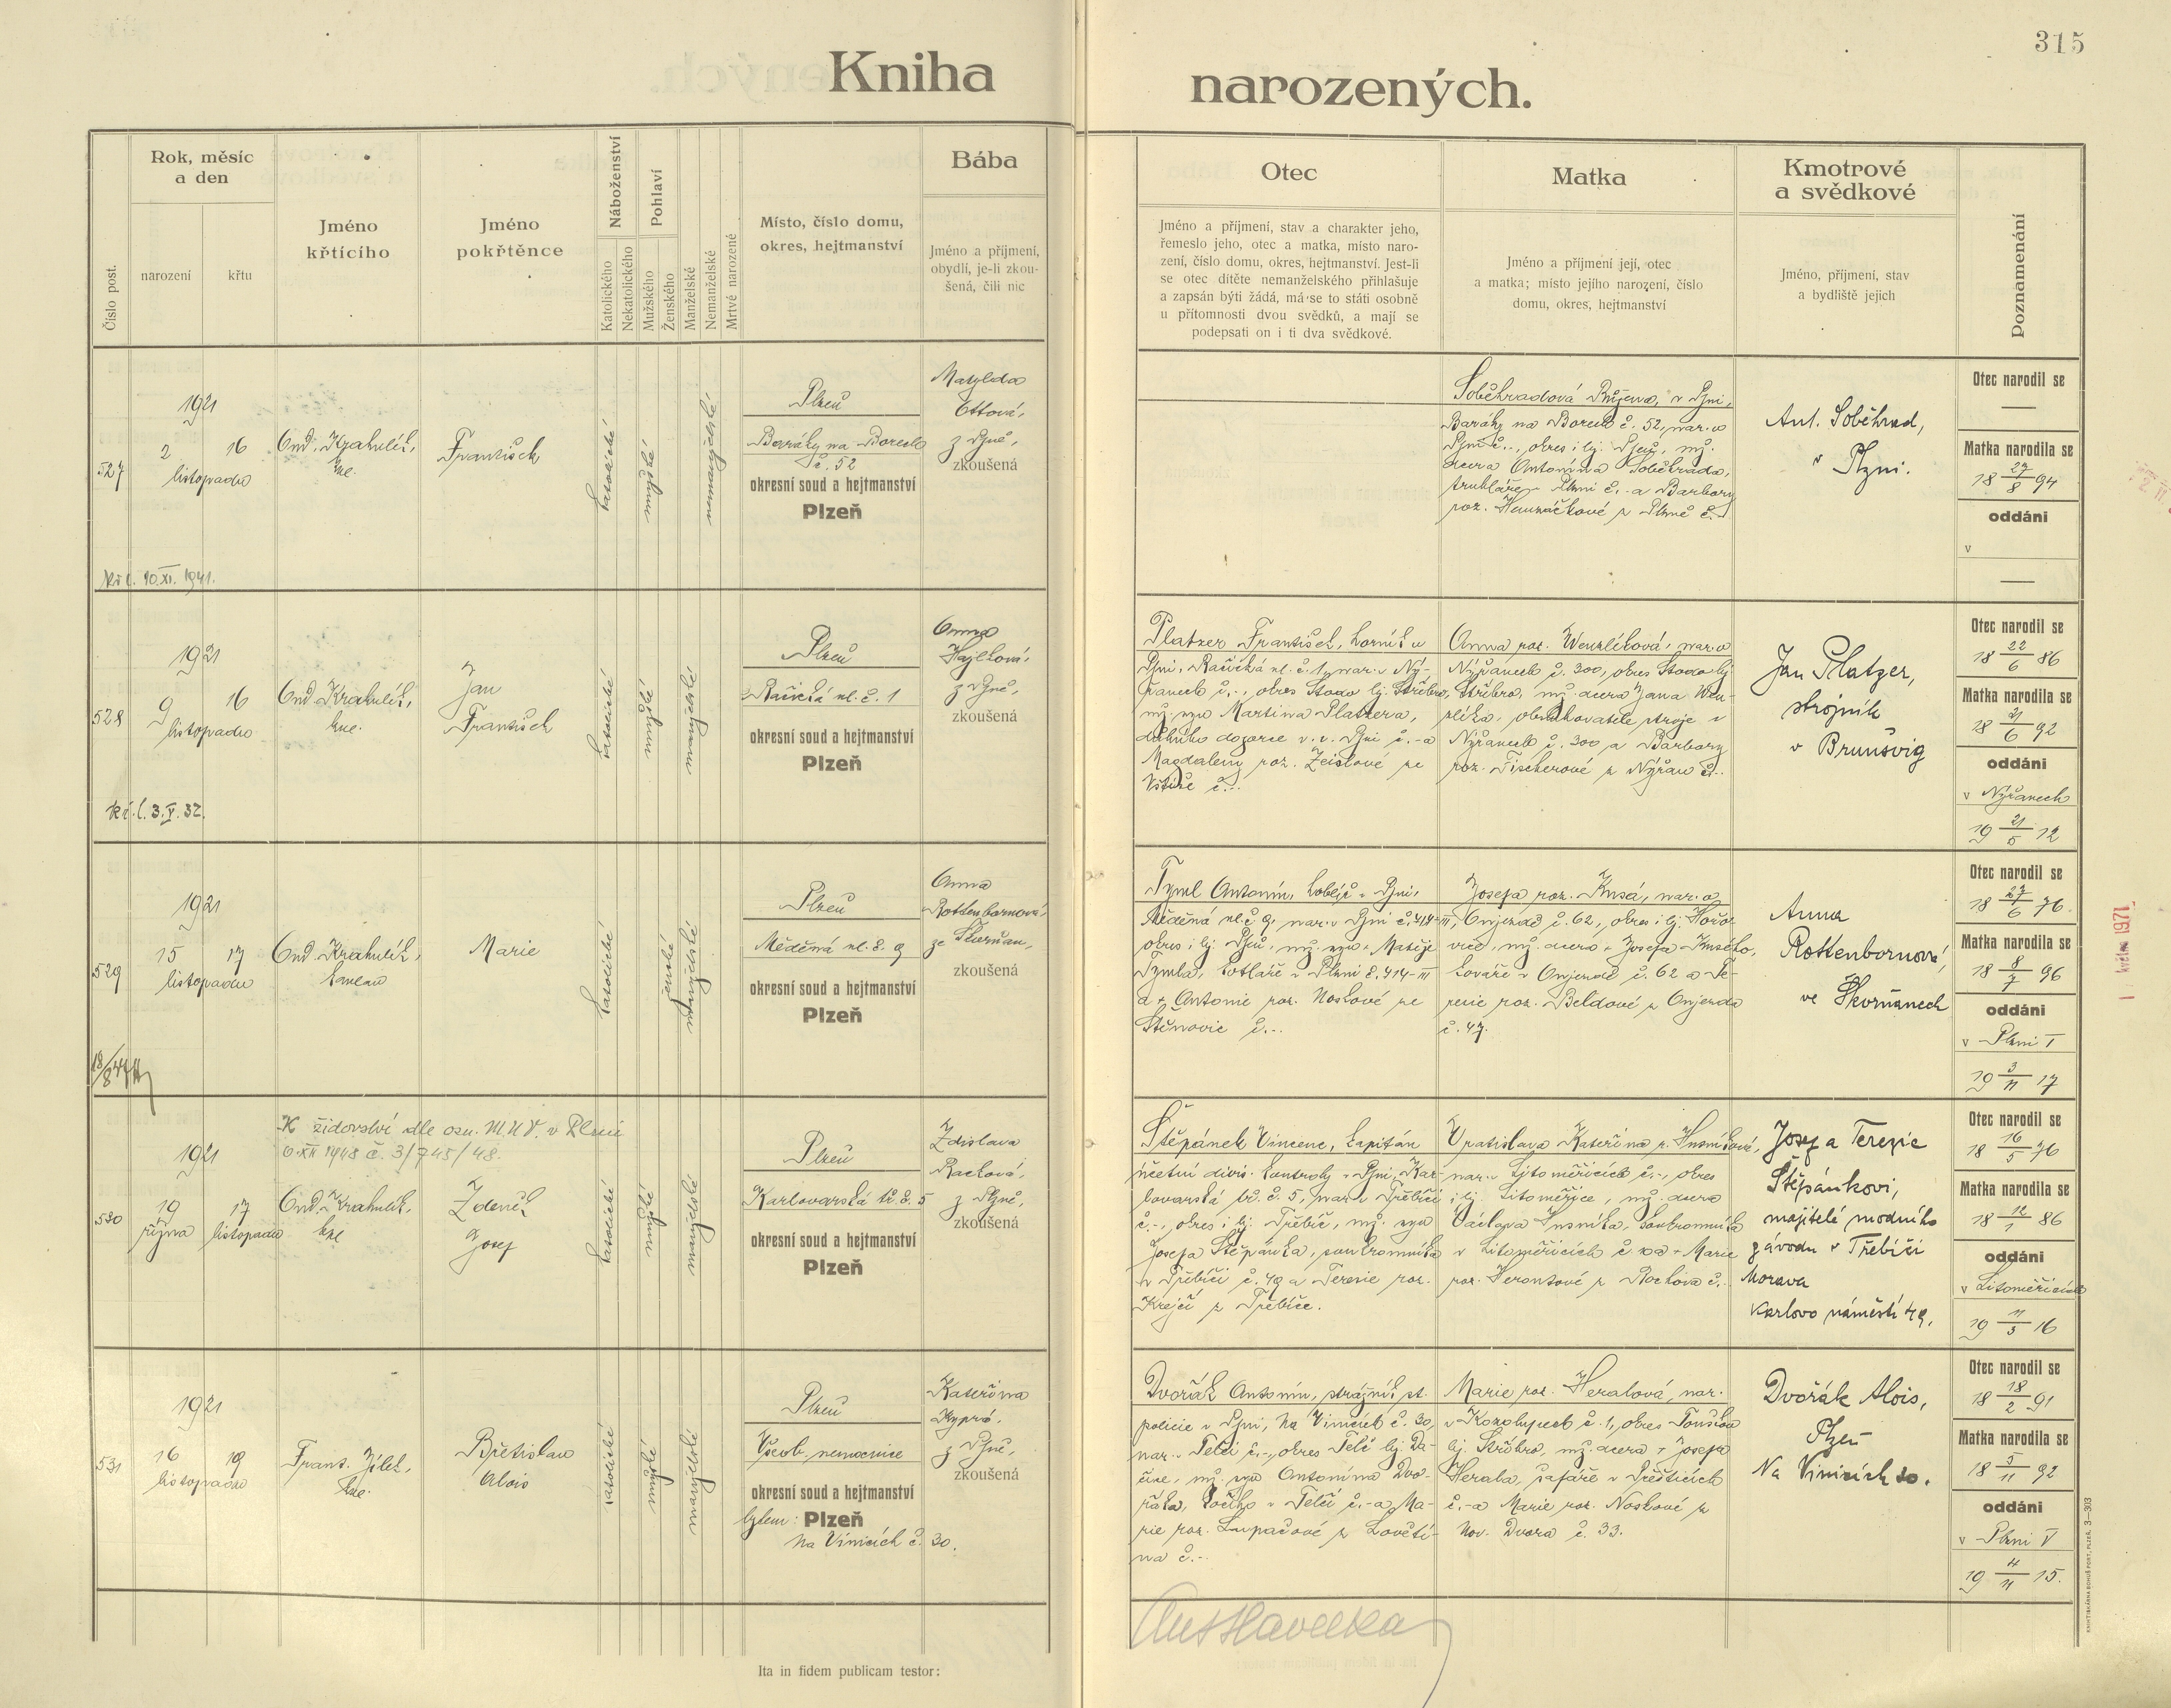 315
Kniha narozených.
Číslo post.
Rok, měsíc
a den
narození
křtu
Jméno
křtícího
Jméno
pokřtěnce
Náboženství
Katolického
Nekatolického
Pohlaví
Mužského
Ženského
Manželské
Nemanželské
Mrtvě narozené
Místo, číslo domu,
okres, hejtmanství
Bába
Jméno a příjmení,
obydlí, je-li zkou-
šená, čili nic
Otec
Jméno a příjmení, stav a charakter jeho,
řemeslo jeho, otec a matka, místo naro-
zení, číslo domu, okres, hejtmanství. Jest-li
se otec dítěte nemanželského přihlašuje
a zapsán býti žádá, má-se to státi osobně
u přítomnosti dvou svědků, a mají se
podepsati on i ti dva svědkové.
Matka
Jméno a příjmení její, otec
a matka; místo jejího narození, číslo
domu, okres, hejtmanství
Kmotrové
a svědkové
Jméno, příjmení, stav
a bydliště jejich
Poznamenání
527
1921
2 16
listopadu
Ond. Krahulík,
František
katolické
mužské
nemanželské
Plzeň
Baráky na Borech
č. 52
okresní soud a hejtmanství
Plzeň
Matylda
Ottová,
z Plzně,
zkoušená
Soběhradová Růžena, v Plzni,
Baráky na Borech č. 52, nar. v
Plzni č.-, okres i hj. Plzeň, mž.
dcera Antonína Soběhrada,
truhláře v Plzni č.- a Barbory
roz.
z Plzně č.-
Ant. Soběhrad,
v Plzni.
Otec narodil se
—
Matka narodila se
18 27/8 94
oddáni
v
—
kř. l. 10.XI. 1941.
528
1921
9 16
listopadu
Ond. Krahulík,
kne.
Jan
František
katolické
mužské
manželské
Plzeň
Račická ul. č. 1
okresní soud a hejtmanství
Plzeň
Anna
Hajková,
z Plzně,
zkoušená
Platzer František, horník v
Plzni, Račická ul. č. 1, nar. v Ný-
řanech č.-, okres Stodo hj. Stříbro,
mž. syn Martina Platzera,
důlního dozorce v. v. Plzni č.- a
Magdaleny roz. Zeislové ze
Vstiše č.-.
Anna roz. Wenzlíková, nar. v
Nýřanech č. 300, okres Stodo hj.
Stříbro, mž. dcera Jana Wen-
zlíka, obsluhovatele stroje v
Nýřanech č. 300 a Barbory
roz. Tischerové z Nýřan č.-.
Jan Platzer,
strojník
v Brunšvig
Otec narodil se
18 22/6 86
Matka narodila se
18 21/6 92
oddáni
v Nýřanech
19 21/5 12
kř. l. 3.V. 32.
529
1921
15 17
listopadu
Ond. Krahulík,
kaplan
Marie
katolické
ženské
manželské
Plzeň
Měděná ul. č. 9
okresní soud a hejtmanství
Plzeň
Anna
Rottenbornová,
ze Skvrňan,
zkoušená
Tyml Antonín, v Plzni,
Měděná ul. č. 9, nar. v Plzni č. 414-III,
okres i hj. Plzeň, mž. syn + Matěje
Tymla, kotláře v Plzni č. 414-III
a + Antonie roz. Noskové ze
Štěnovic č.-.
Josefa roz. nar. v
Onjezdě č. 62, okres i hj. Hořo-
vice, mž. dcera + Josefa
kováře v Onjezdě č. 62 a Te-
rezie roz. Beldové z Onjezda
č. 47.
Anna
Rottenbornová,
ve Skvrňanech
Otec narodil se
18 27/6 76.
Matka narodila se
18 8/7 96
oddáni
v Plzni I
19 3/11 17
530
K židovství dle ozn. M.N.V. v Plzni
6.XII 1948 č. 3/745/48.
1921
19 17
října listopadu
Ond. Krahulík,
kne
Zdeněk
Josef
katolické
mužské
manželské
Plzeň
Karlovarská tř. č. 5
okresní soud a hejtmanství
Plzeň
Zdislava
Racková,
z Plzně,
zkoušená
Štěpánek Vincenc, kapitán
účetní divis. kontroly v Plzni, Kar-
lovarská tř. č. 5, nar. v Třebíči
č.-, okres i hj. Třebíč, mž. syn
Josefa Štěpánka, soukromníka
v Třebíči č. 49 a Terezie roz.
Krejčí z Třebíče.
Vratislava Kateřina r. Husníková,
nar. v Litoměřicích č.-, okres
i hj. Litoměřice, mž. dcera
Václava Husníka, soukromníka
v Litoměřicích + Marie
roz. z Rochova č.-.
Josef a Terezie
Štěpánkovi,
majitelé modního
závodu v Třebíči
Morava
Karlovo náměstí 49.
Otec narodil se
18 16/5 76
Matka narodila se
18 12/1 86
oddáni
v Litoměřicích
19 11/5 16
531
1921
16 19
listopadu
Frant. Jílek,
kne.
Břetislav
Alois
katolické
mužské
manželské
Plzeň
Všeob. nemocnice
okresní soud a hejtmanství
bytem: Plzeň
Na Vinicích č. 30.
Kateřina
Kyprá,
z Plzně,
zkoušená
Dvořák Antonín, strážník st.
policie v Plzni, Na Vinicích č. 30,
nar. v Telči č.-, okres Telč hj. Da-
čice, mž. syn Antonína Dvo-
řáka, kočího v Telči č.- a Ma-
rie roz. Lupačové z Lovětí-
na č.-
Marie roz. Heralová, nar.
v Kozolupech č. 1, okres Touškov
hj. Stříbro, mž. dcera + Josefa
Herala, šafáře v Přešticích
č.- a Marie roz. Noskové z
Nov. Dvora č. 33.
Dvořák Alois,
Plzeň
Na Vinicích 30.
Otec narodil se
18 18/2 91
Matka narodila se
18 5/11 92
oddáni
v Plzni V
19 4/11 15.
Ant Havelka
Ita in fidem publicam testor:
KNIHTISKÁRNA BOHUŠ PORT, PLZEŇ. 3—303